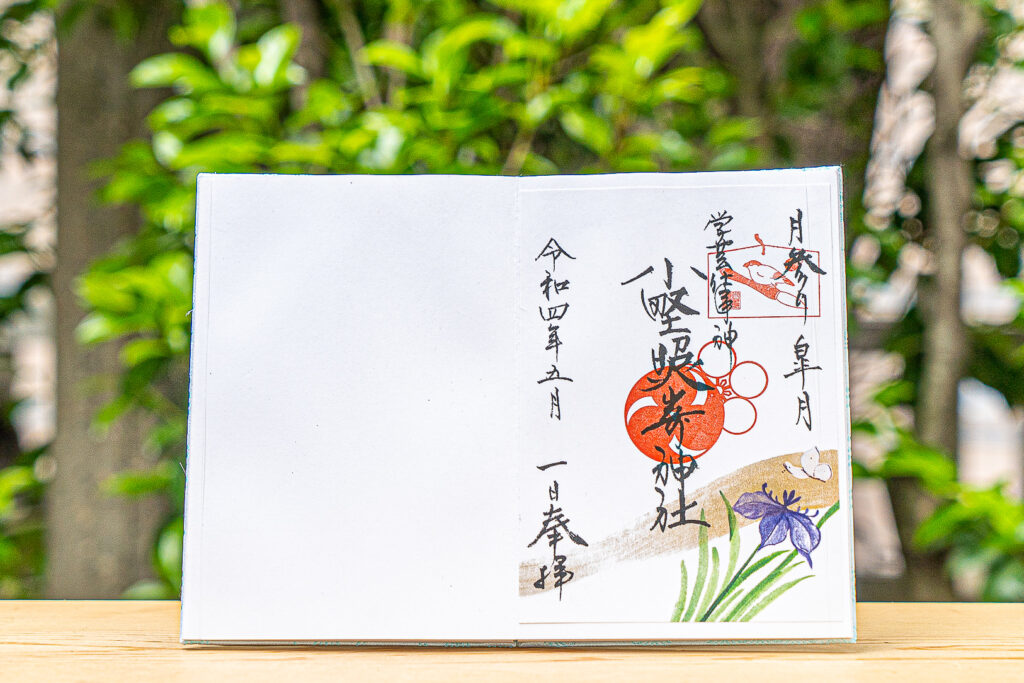 月参り 皐月
学芸仕事神
小野照崎神社
令和四年五月 一日奉拝